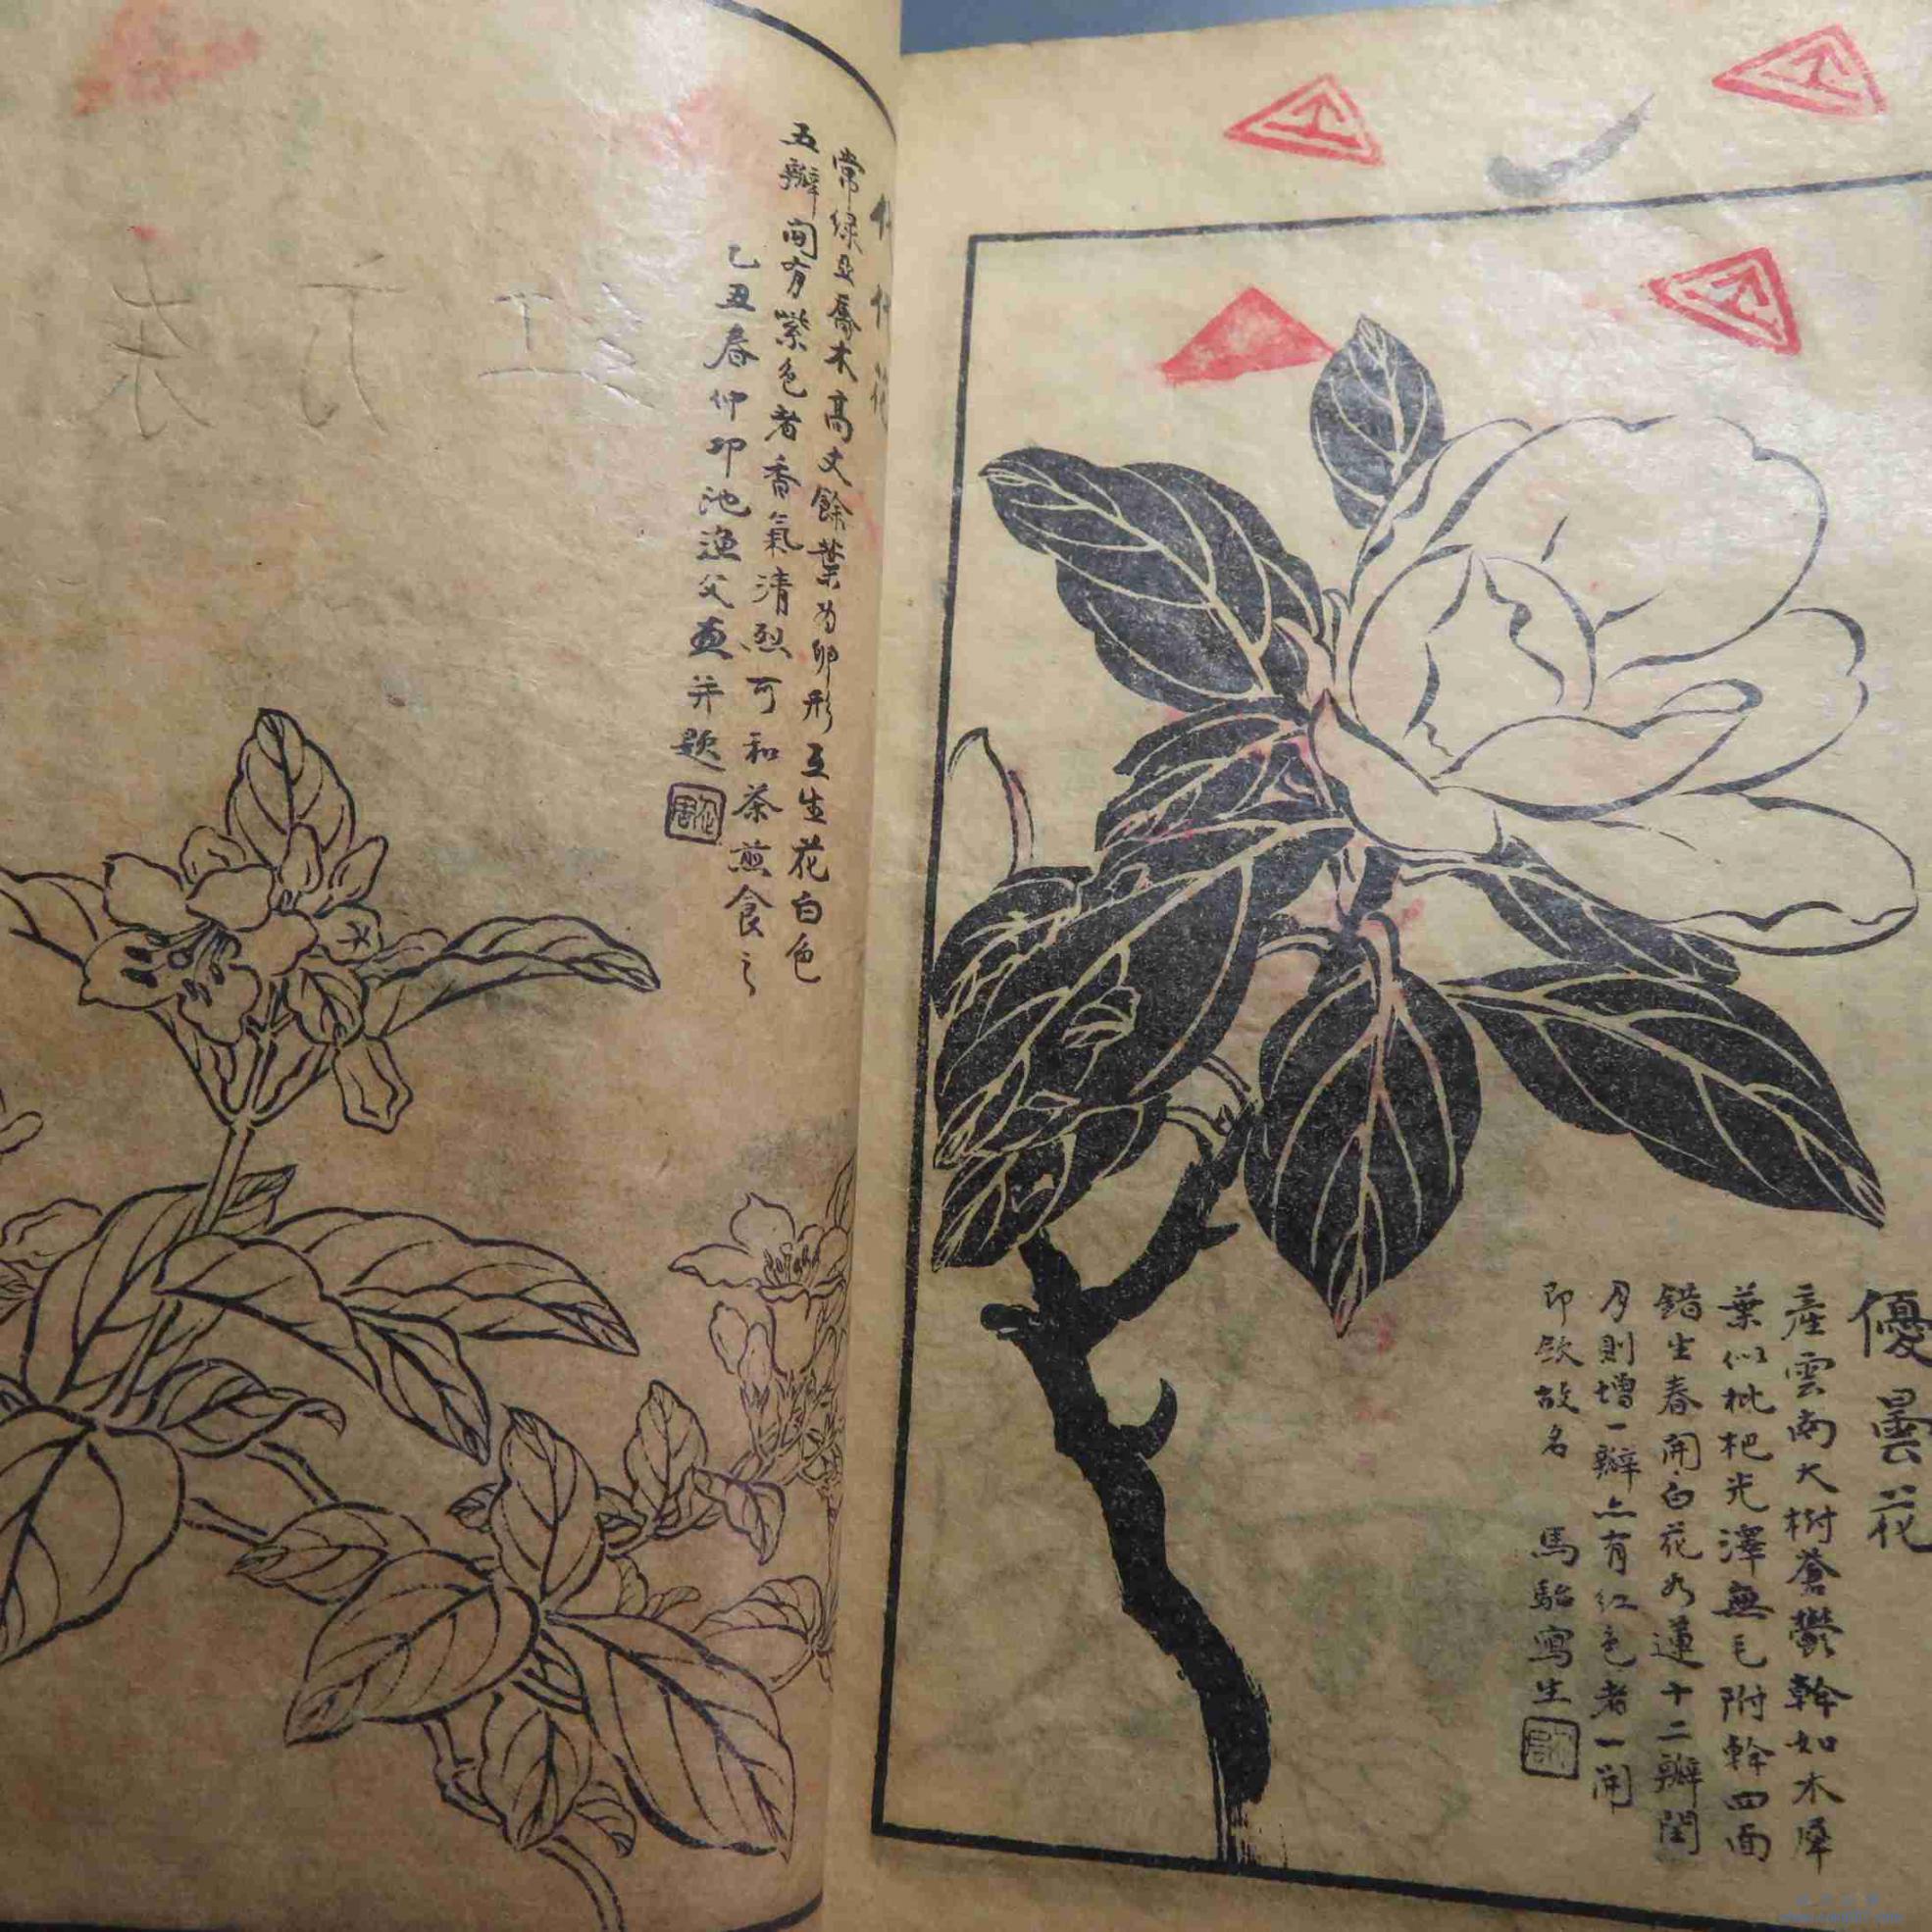 優曇花
產雲南大樹蒼鬱幹如木犀
葉似枇杷光澤無毛附幹四面
錯生春開白花如蓮十二瓣閏
月則增一瓣亦有紅色者一開
即斂故名
馬駘寫生
常綠亞喬木高丈餘葉為卵形互生花白色
五瓣間有紫色者香氣清烈可和茶煎食之
乙丑春仲邛池漁父畫并題